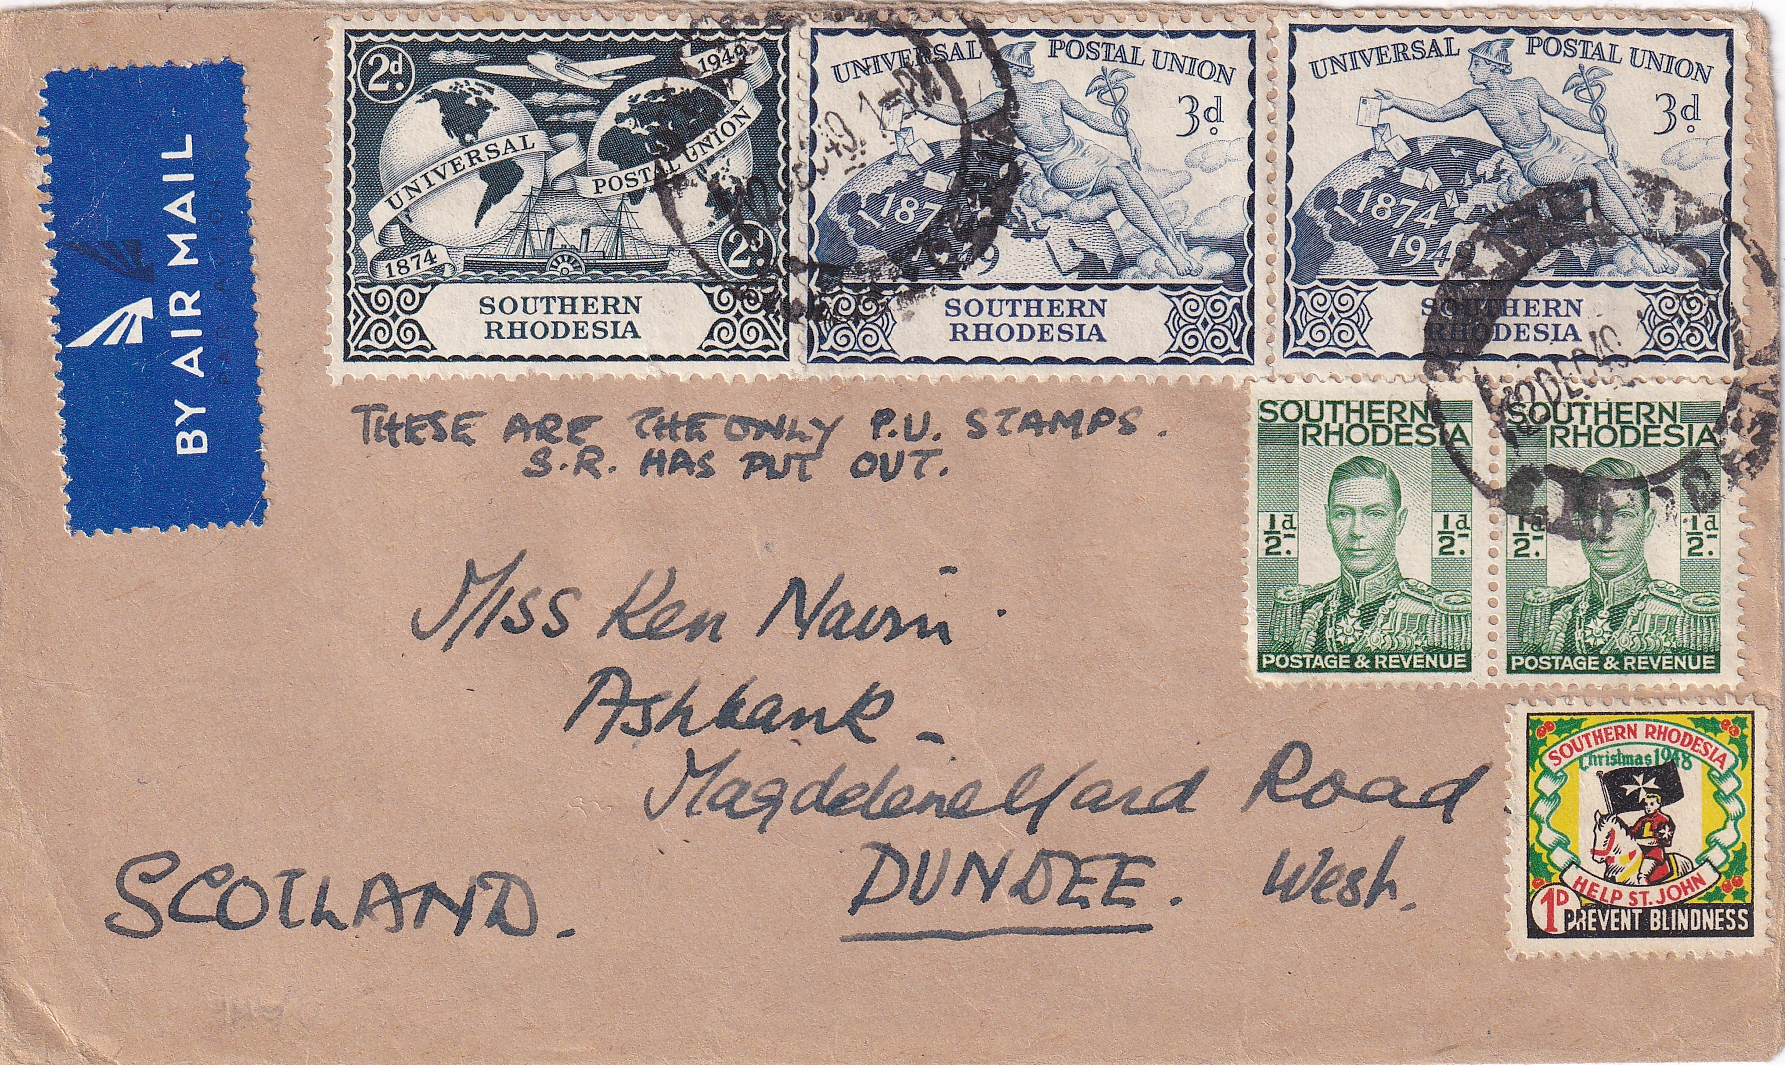 BY AIR MAIL
PAR AVION
2d.
1949
UNIVERSAL
POSTAL UNION
1874
2d.
SOUTHERN
RHODESIA
UNIVERSAL POSTAL UNION
3d.
SOUTHERN
RHODESIA
UNIVERSAL POSTAL UNION
3d.
1874
194
SOUTHERN
RHODESIA
12 DEC 49
THESE ARE THE ONLY P.U. STAMPS.
S.R. HAS PUT OUT.
SOUTHERN
RHODESIA
½d.
½d.
POSTAGE & REVENUE
SOUTHERN
RHODESIA
½d.
½d.
POSTAGE & REVENUE
Miss Ken
Ashbank
Magdelene Yard Road
DUNDEE. West.
SCOTLAND.
SOUTHERN RHODESIA
Christmas 1948
HELP ST. JOHN
1D PREVENT BLINDNESS